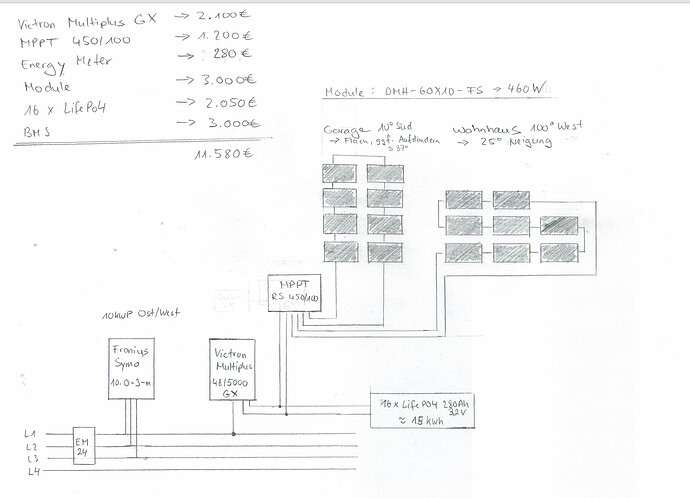 Victron Multiplus GX → 2.100€
MPPT 450/100 → 1.200€
Energy Meter → 280€
Module → 3.000€
16 x LifePo4 → 2.050€
BMS → 3.000€
11.580€
Module : DMH-60X10-FS → 460W
Garage 10° Süd
→ Flach, ggf. Aufständern
≈ 37°
Wohnhaus 100° West
→ 25° Neigung
MPPT
RS 450/100
10kWP Ost/West
Fronius
Symo
10.0-3-m
Victron
Multiplus
48/5000
GX
16 x LifePO4 280Ah
3,2V
≈ 15 kWh
L1
L2
L3
L4
EM
24